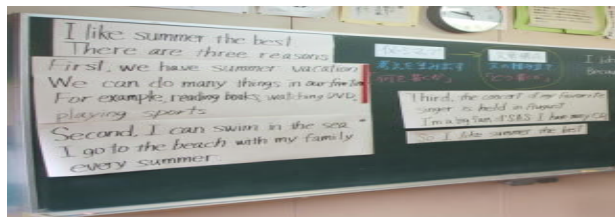 I like summer the best
There are three reasons
First, we have summer vacation
We can do many things in our free time
For example, reading books, watching DVD,
playing sports
Second, I can swim in the sea
I go to the beach with my family
every summer
考えを生み出す
「何を書くか」
「どう書くか」
Third, the concert of my favorite
singer is held in August
I'm a big fan of I have many CD
So I like summer the best
I like
Because